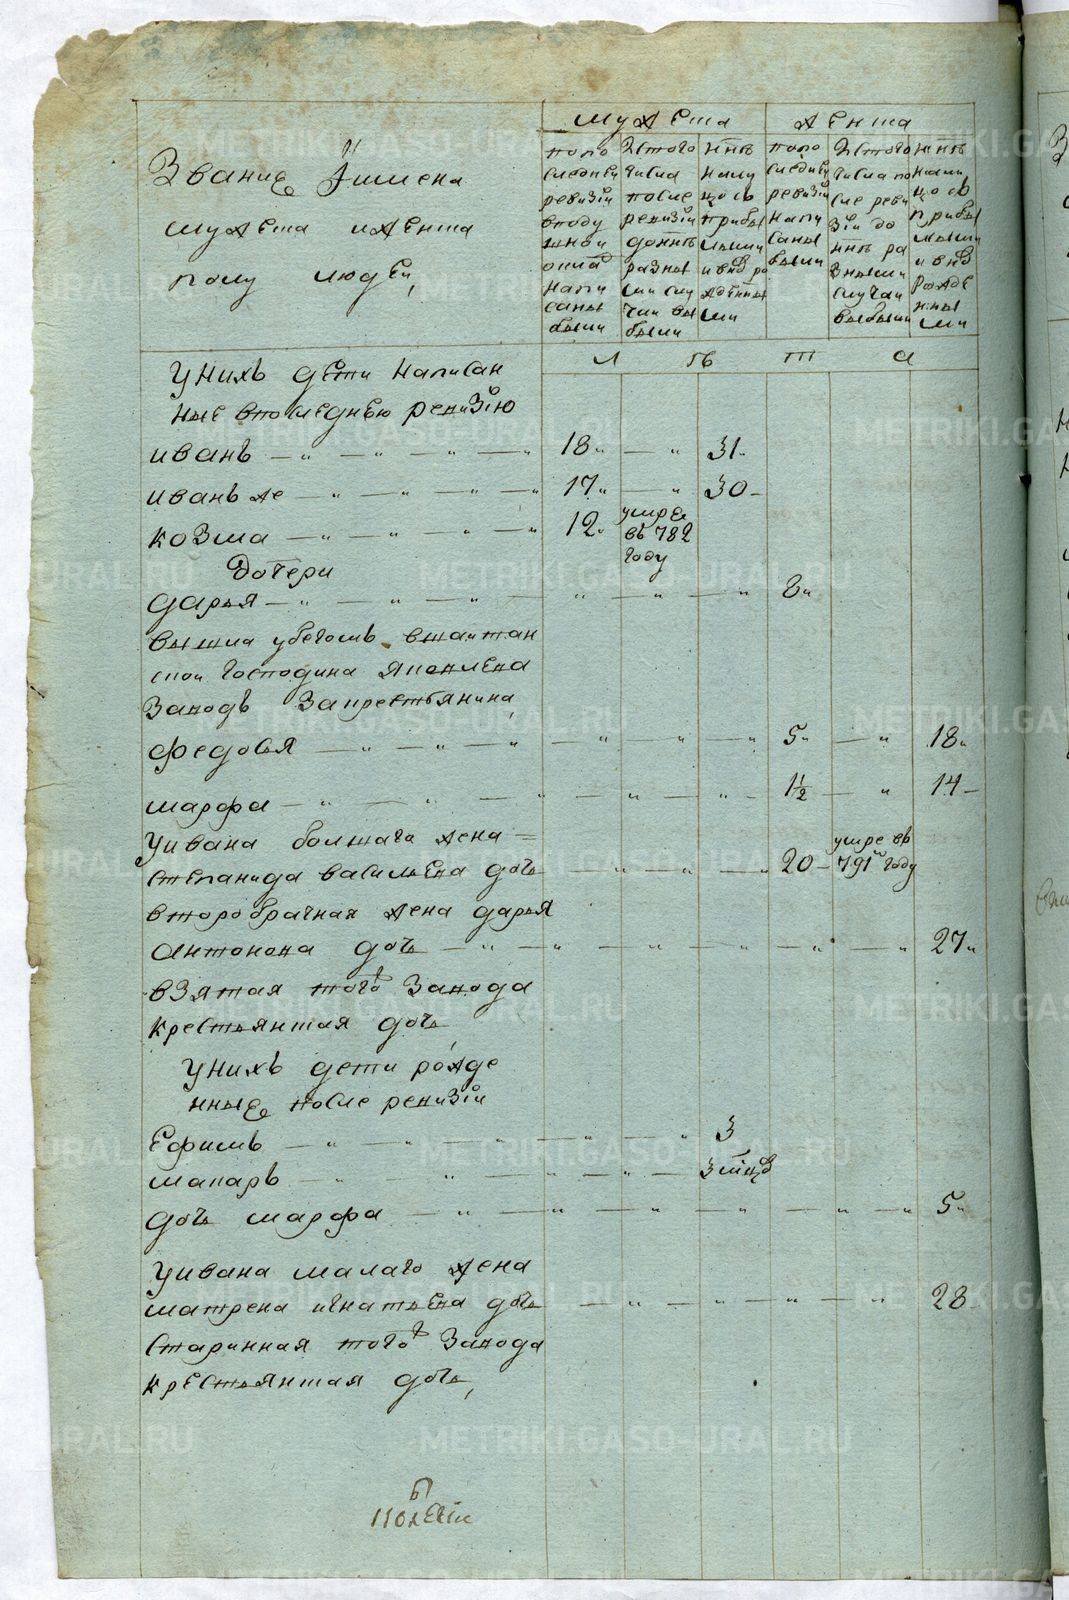 мужеска
женска
Звание Й имена
мужеска иженска
полу людей
попо следней ревизии вподушной окладъ написаны были
Изтого числа после ревизии донне разными случаи выбыли
нне налицо съ прибылыми ивновъ рожденными
попо следней ревизии написаны были
Изтого числа после ревизии до нне разными случаи выбыли
нне налицо съ прибылыми ивновь рожденными
л ѣ т а
унихъ дети написан
ные впоследнею ревизiю
иванъ 18 31
иванъ же 17 30
козма 12 умре въ 782 году
дочери
дарья 8
вышла убегомъ вшайтан
ской господина яковлева
Заводъ Закрестьянина
федосья 5 18
марфа 1½ 14
уивана болшаго жена
степанида васильева дочь 20 умре въ 791м году
второбрачная жена дарья
антонова дочь 27
взятая того Завода
крестьянская дочь
унихъ дети рожде
нные после ревизiи
Ефимъ 3
макаръ 3 мцовъ
дочь марфа 5
уивана малаго жена
матрена игнатьева дочь 28
старинная того Завода
крестьянская дочь
METRIKI.GASO-URAL.RU